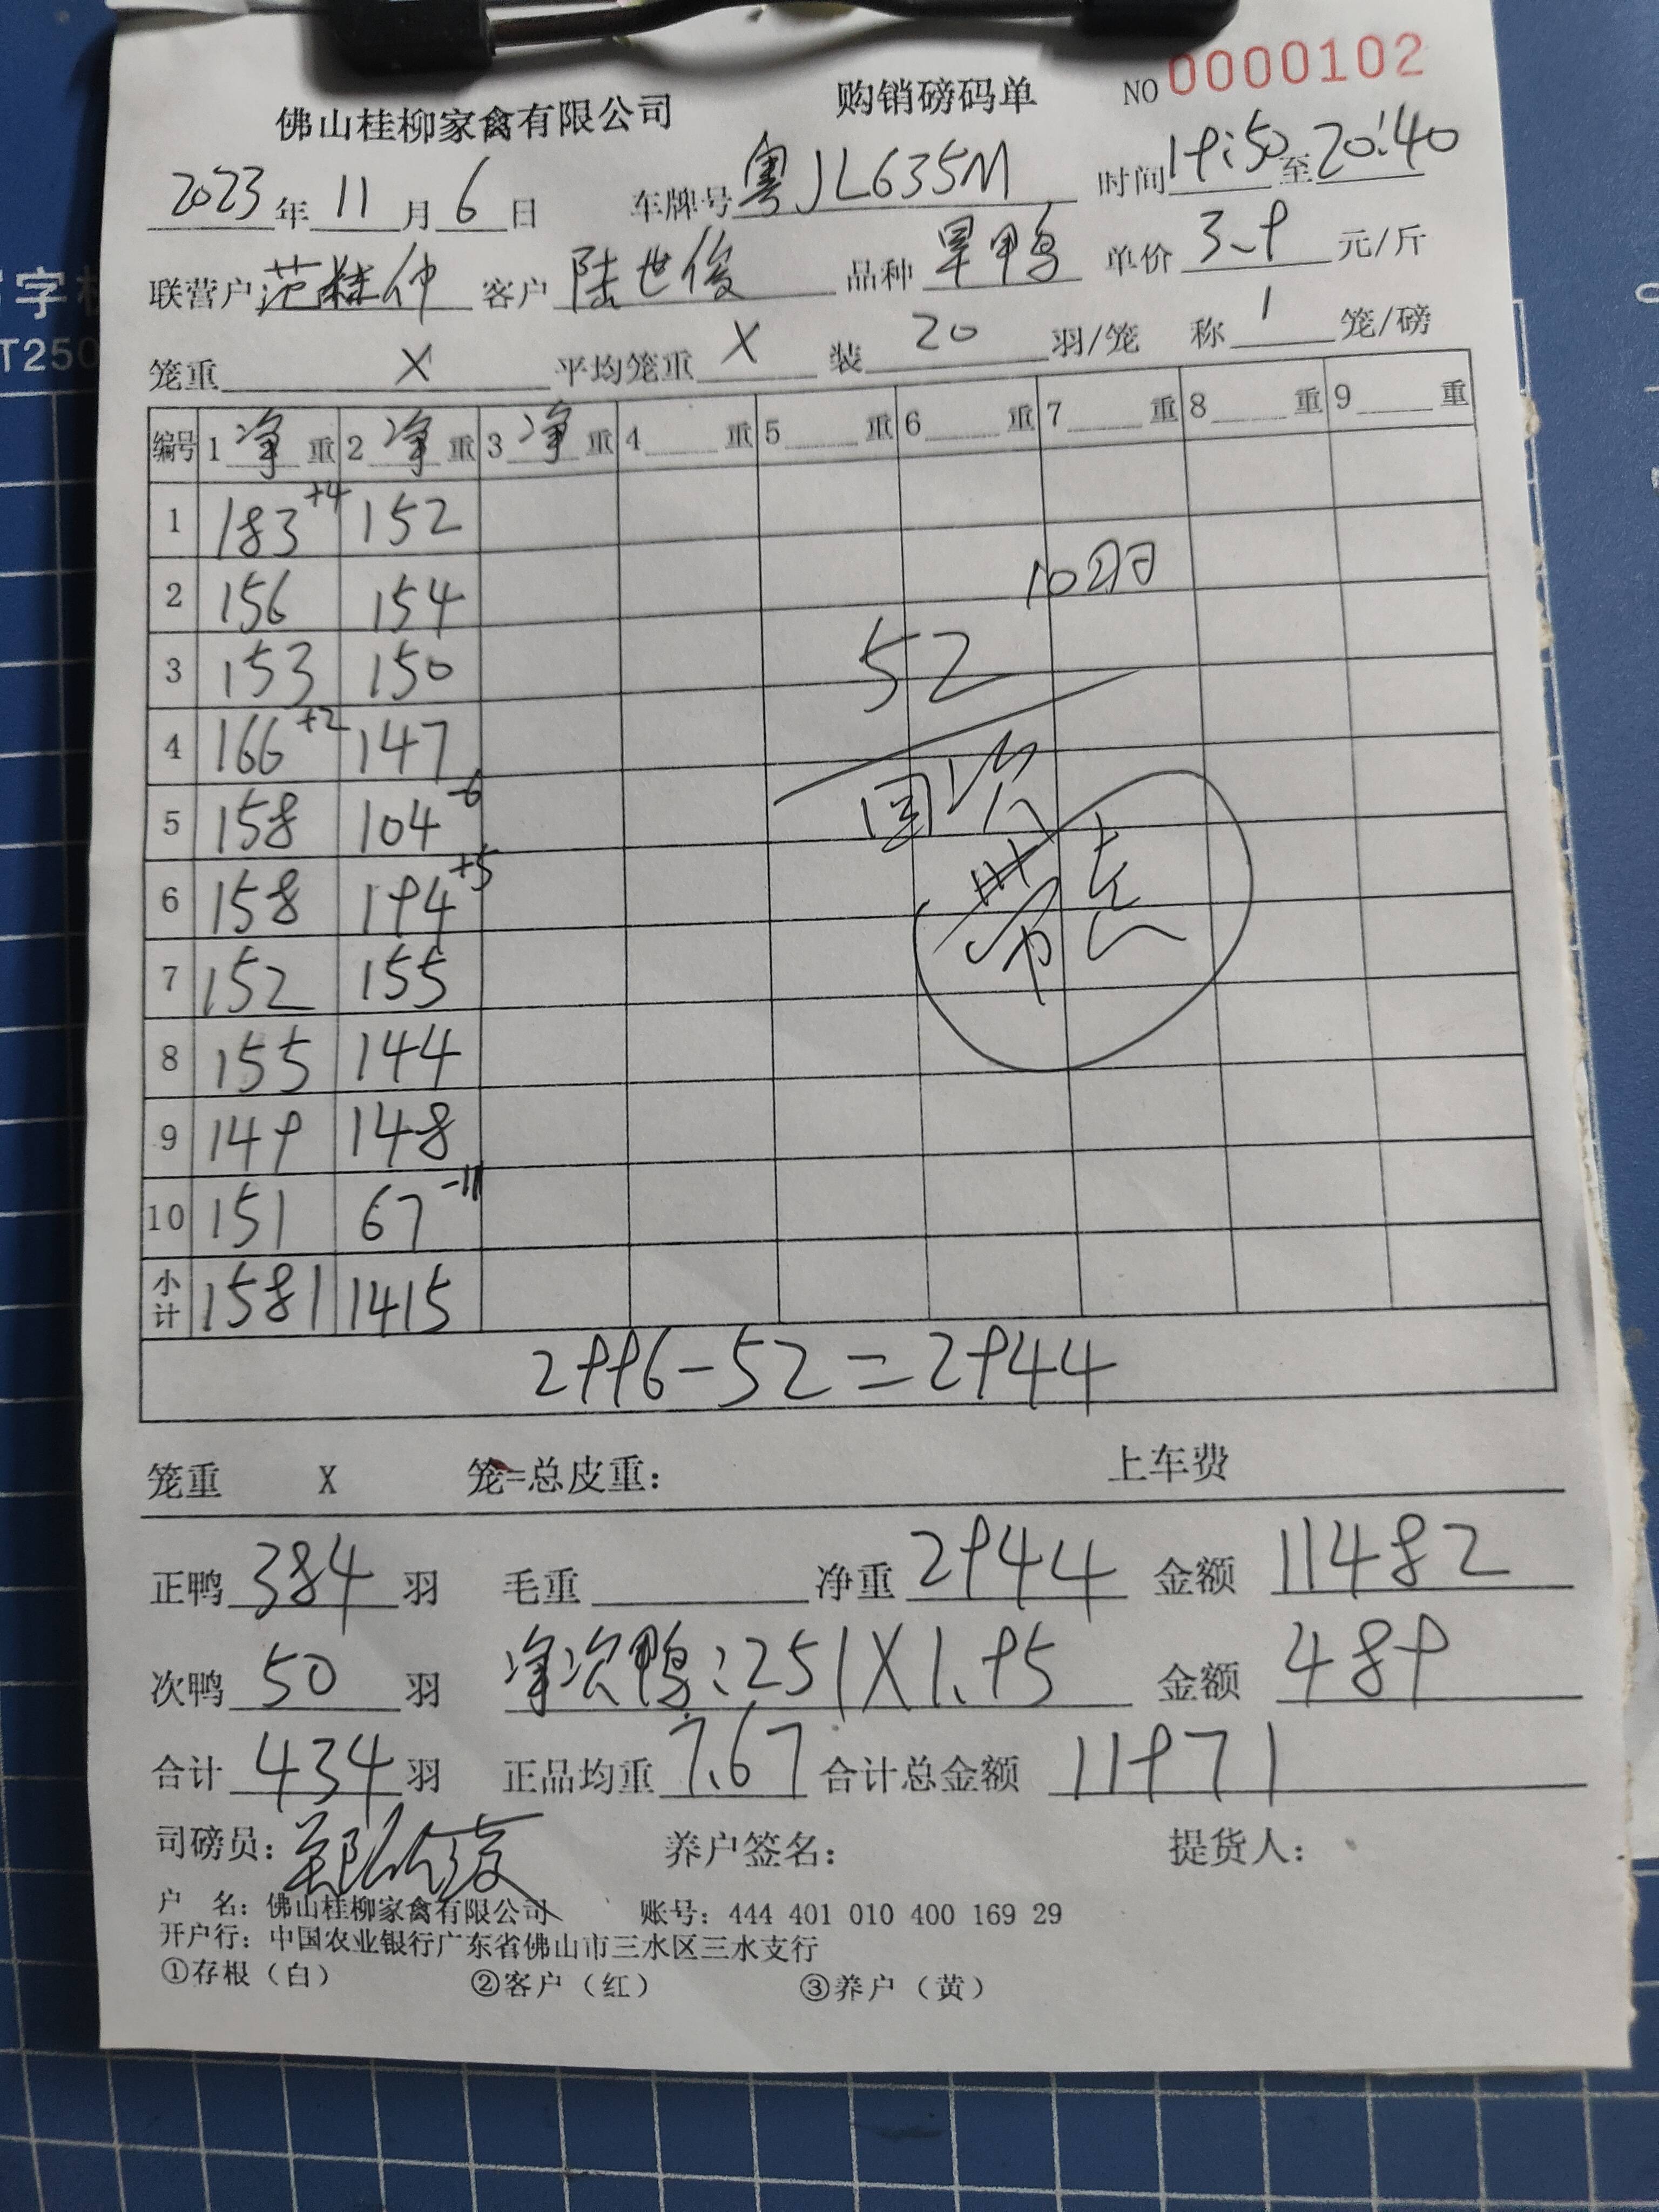 NO 0000102
佛山桂柳家禽有限公司 购销磅码单
2023年11月6日 车牌号粤JL635M 时间19:50至20:40
联营户范桂仲 客户陆世俊 品种旱鸭 单价3.9元/斤
笼重X平均笼重X 装20羽/笼 称1笼/磅
编号 1净重 2净重 3净重 4重 5重 6重 7重 8重 9重
1 183+4 152
2 156 154 10羽
3 153 150 52
4 166+2 147
5 158 104-6
6 158 194+5
7 152 155
8 155 144
9 149 148
10 151 67-11
小计 1581 1415
2996-52=2944
笼重 X 笼=总皮重: 上车费
正鸭384羽 毛重 净重2944 金额11482
次鸭50羽 净次鸭:251X1.95 金额489
合计434羽 正品均重7.67 合计总金额11971
司磅员: 养户签名: 提货人:
户 名: 佛山桂柳家禽有限公司 账号: 444 401 010 400 169 29
开户行: 中国农业银行广东省佛山市三水区三水支行
①存根（白） ②客户（红） ③养户（黄）